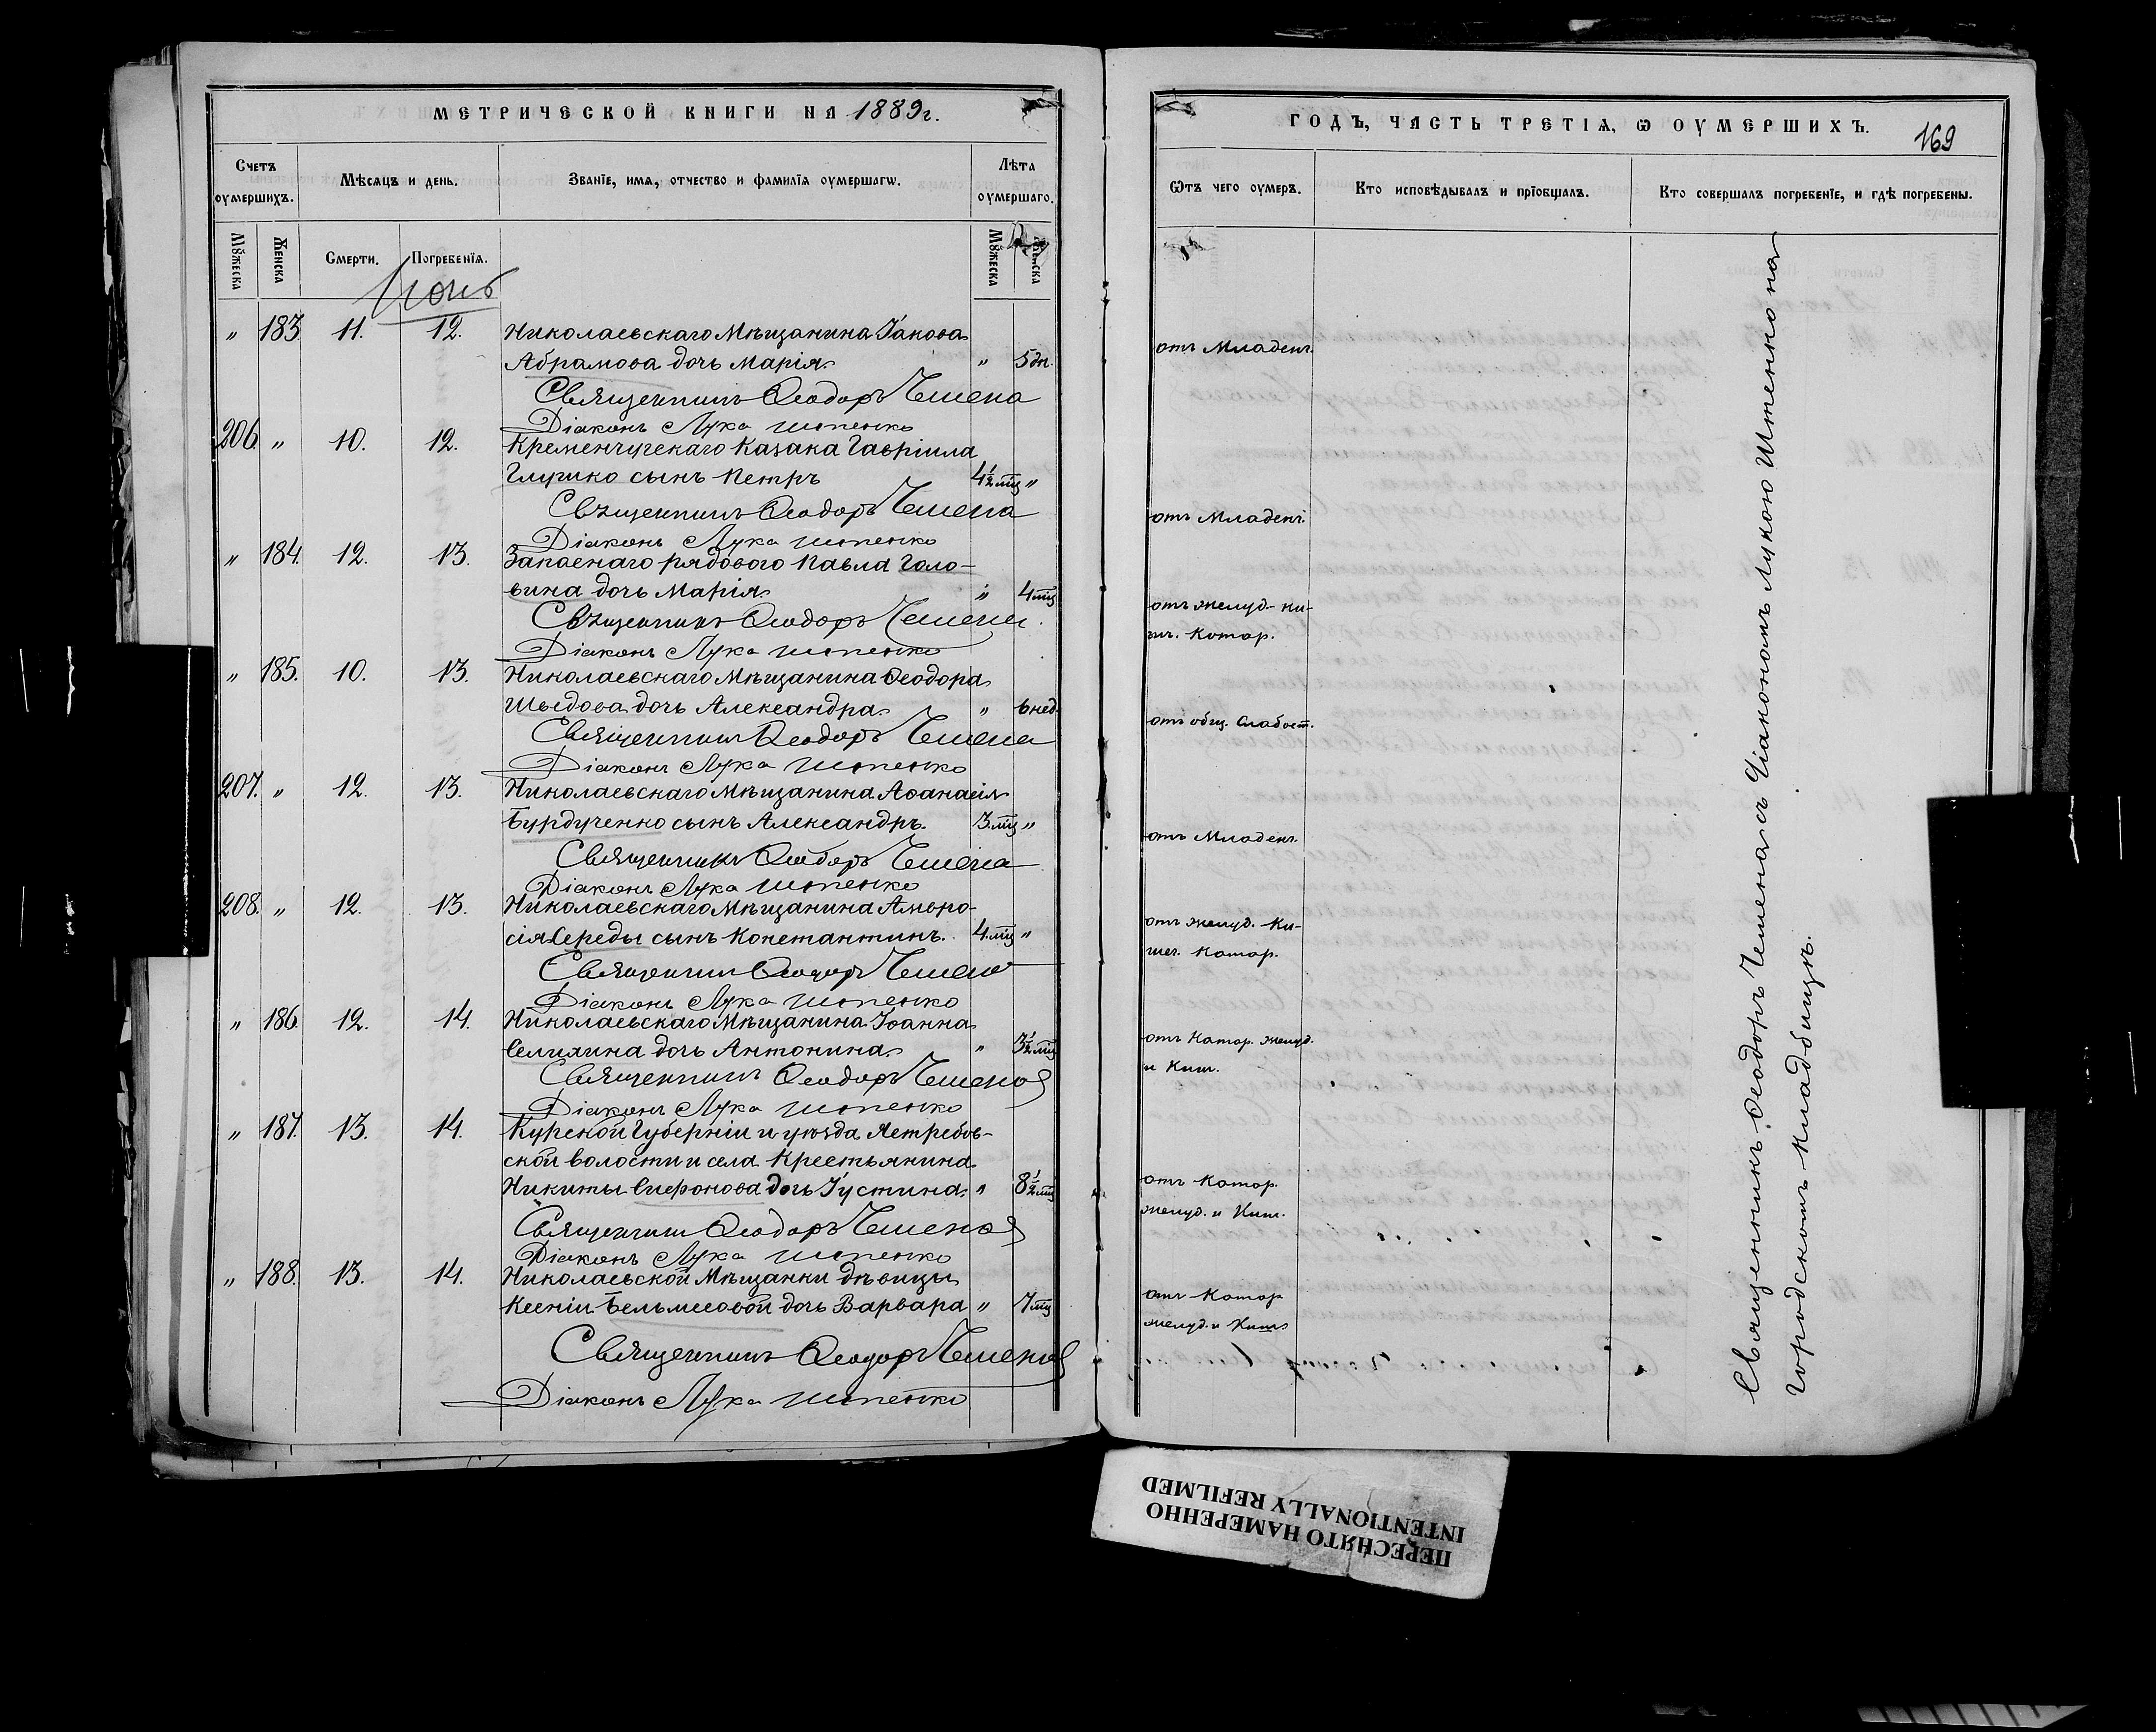 МЕТРИЧЕСКОЙ КНИГИ НА 1889г.
Счетъ оумершихъ.
Мѣсяцъ и день.
Званіе, имя, отчество и фамилія оумершагѡ.
Лѣта оумершаго.
Мꙋжеска
Женска
Смерти.
Погребенїя.
Мꙋжеска
Женска
Іюнь
" 183. 11. 12. Николаевскаго Мѣщанина Іакова
Абрамова дочь Марія. " 5 дн.
Священникъ Ѳеодоръ Чемена
Діаконъ Лука Штенко
206. " 10. 12. Кременчугскаго Казака Гавріила
Глушко сынъ Петръ 4½ мц "
Священникъ Ѳеодоръ Чемена
Діаконъ Лука Штенко
" 184. 12. 13. Запаснаго рядового Павла Голо-
вина дочь Марія. " 4 мц
Священникъ Ѳеодоръ Чемена
Діаконъ Лука Штенко
" 185. 10. 13. Николаевскаго Мѣщанина Ѳеодора
Шведова дочь Александра. " 6 нед.
Священникъ Ѳеодоръ Чемена
Діаконъ Лука Штенко
207. " 12. 13. Николаевскаго Мѣщанина Аѳанасія
Бурдученко сынъ Александръ. 3 мц "
Священникъ Ѳеодоръ Чемена
Діаконъ Лука Штенко
208. " 12. 13. Николаевскаго Мѣщанина Амвро-
сія Середы сынъ Константинъ. 4 мц "
Священникъ Ѳеодоръ Чемена
Діаконъ Лука Штенко
" 186. 12. 14. Николаевскаго Мѣщанина Іоанна
дочь Антонина. " 3½ мц
Священникъ Ѳеодоръ Чемена
Діаконъ Лука Штенко
" 187. 13. 14. Курской Губерніи и уѣзда Ястребов-
ской волости и села Крестьянина
Никиты Сафонова дочь Іустина. " 8½ мц
Священникъ Ѳеодоръ Чемена
Діаконъ Лука Штенко
" 188. 13. 14. Николаевской Мѣщанки дѣвицы
Ксеніи Бельмесовой дочь Варвара " 7 мц
Священникъ Ѳеодоръ Чемена
Діаконъ Лука Штенко
ГОДЪ, ЧАСТЬ ТРЕТІЯ, Ѡ ОУМЕРШИХЪ.
169
Ѿтъ чего оумеръ.
Кто исповѣдывалъ и прїобщалъ.
Кто совершалъ погребенїе, и гдѣ погребены.
отъ Младенч.
отъ Младенч.
отъ желуд-ки-
шч. Катар.
отъ общ. Слабост.
отъ Младенч.
отъ желуд. Ки-
шеч. Катар.
отъ Катар. желуд.
и Киш.
отъ Катар.
желуд. и Киш.
отъ Катар
желуд. и Киш
Священникъ Ѳеодоръ Чемена съ Діакономъ Лукою Штенко на
городскомъ кладбищѣ.
ПЕРЕСНЯТО НАМЕРЕННО
INTENTIONALLY REFILMED